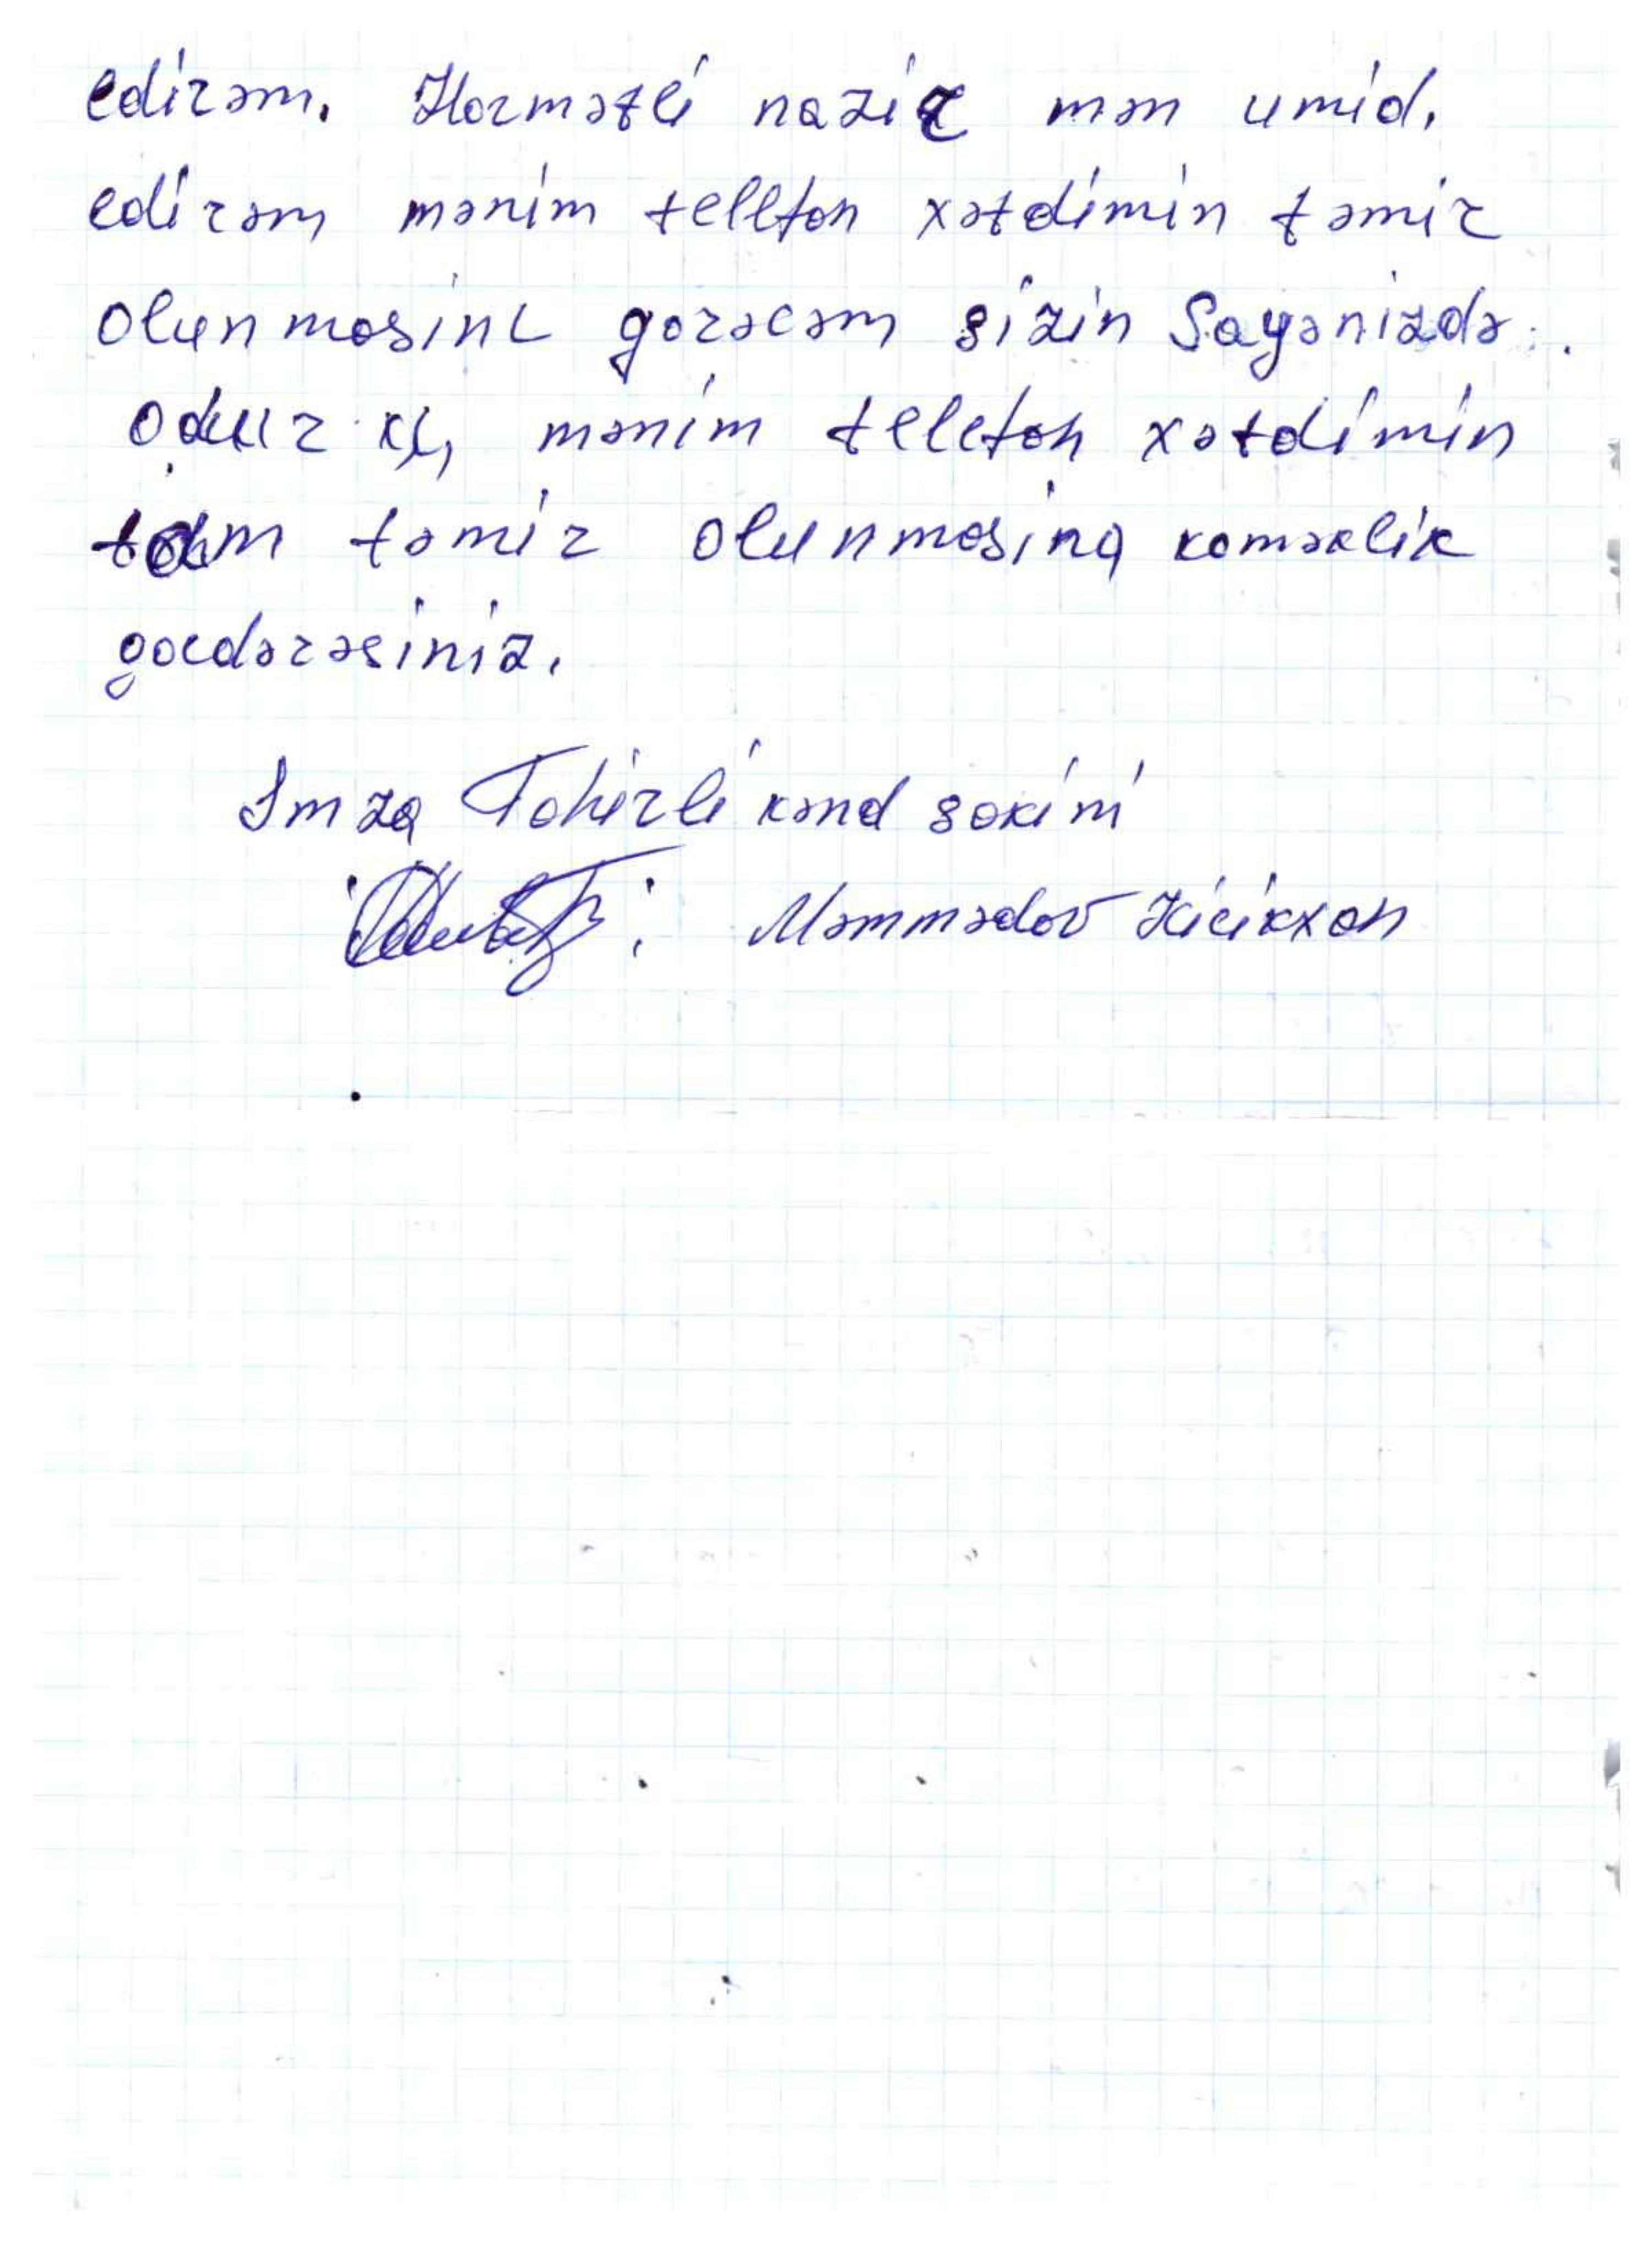 edirəm. Hormətli nazir mən umid.
edirəm mənim tellfon xətdimin təmir
olunmasını gorəcəm sizin Sayənizdə.
odur ki, mənim telefon xətdimin
tam təmir olunmasina koməklik
gocdərəsiniz.
Imza Tahirli kənd sakini
Məmmədov Kicikxan